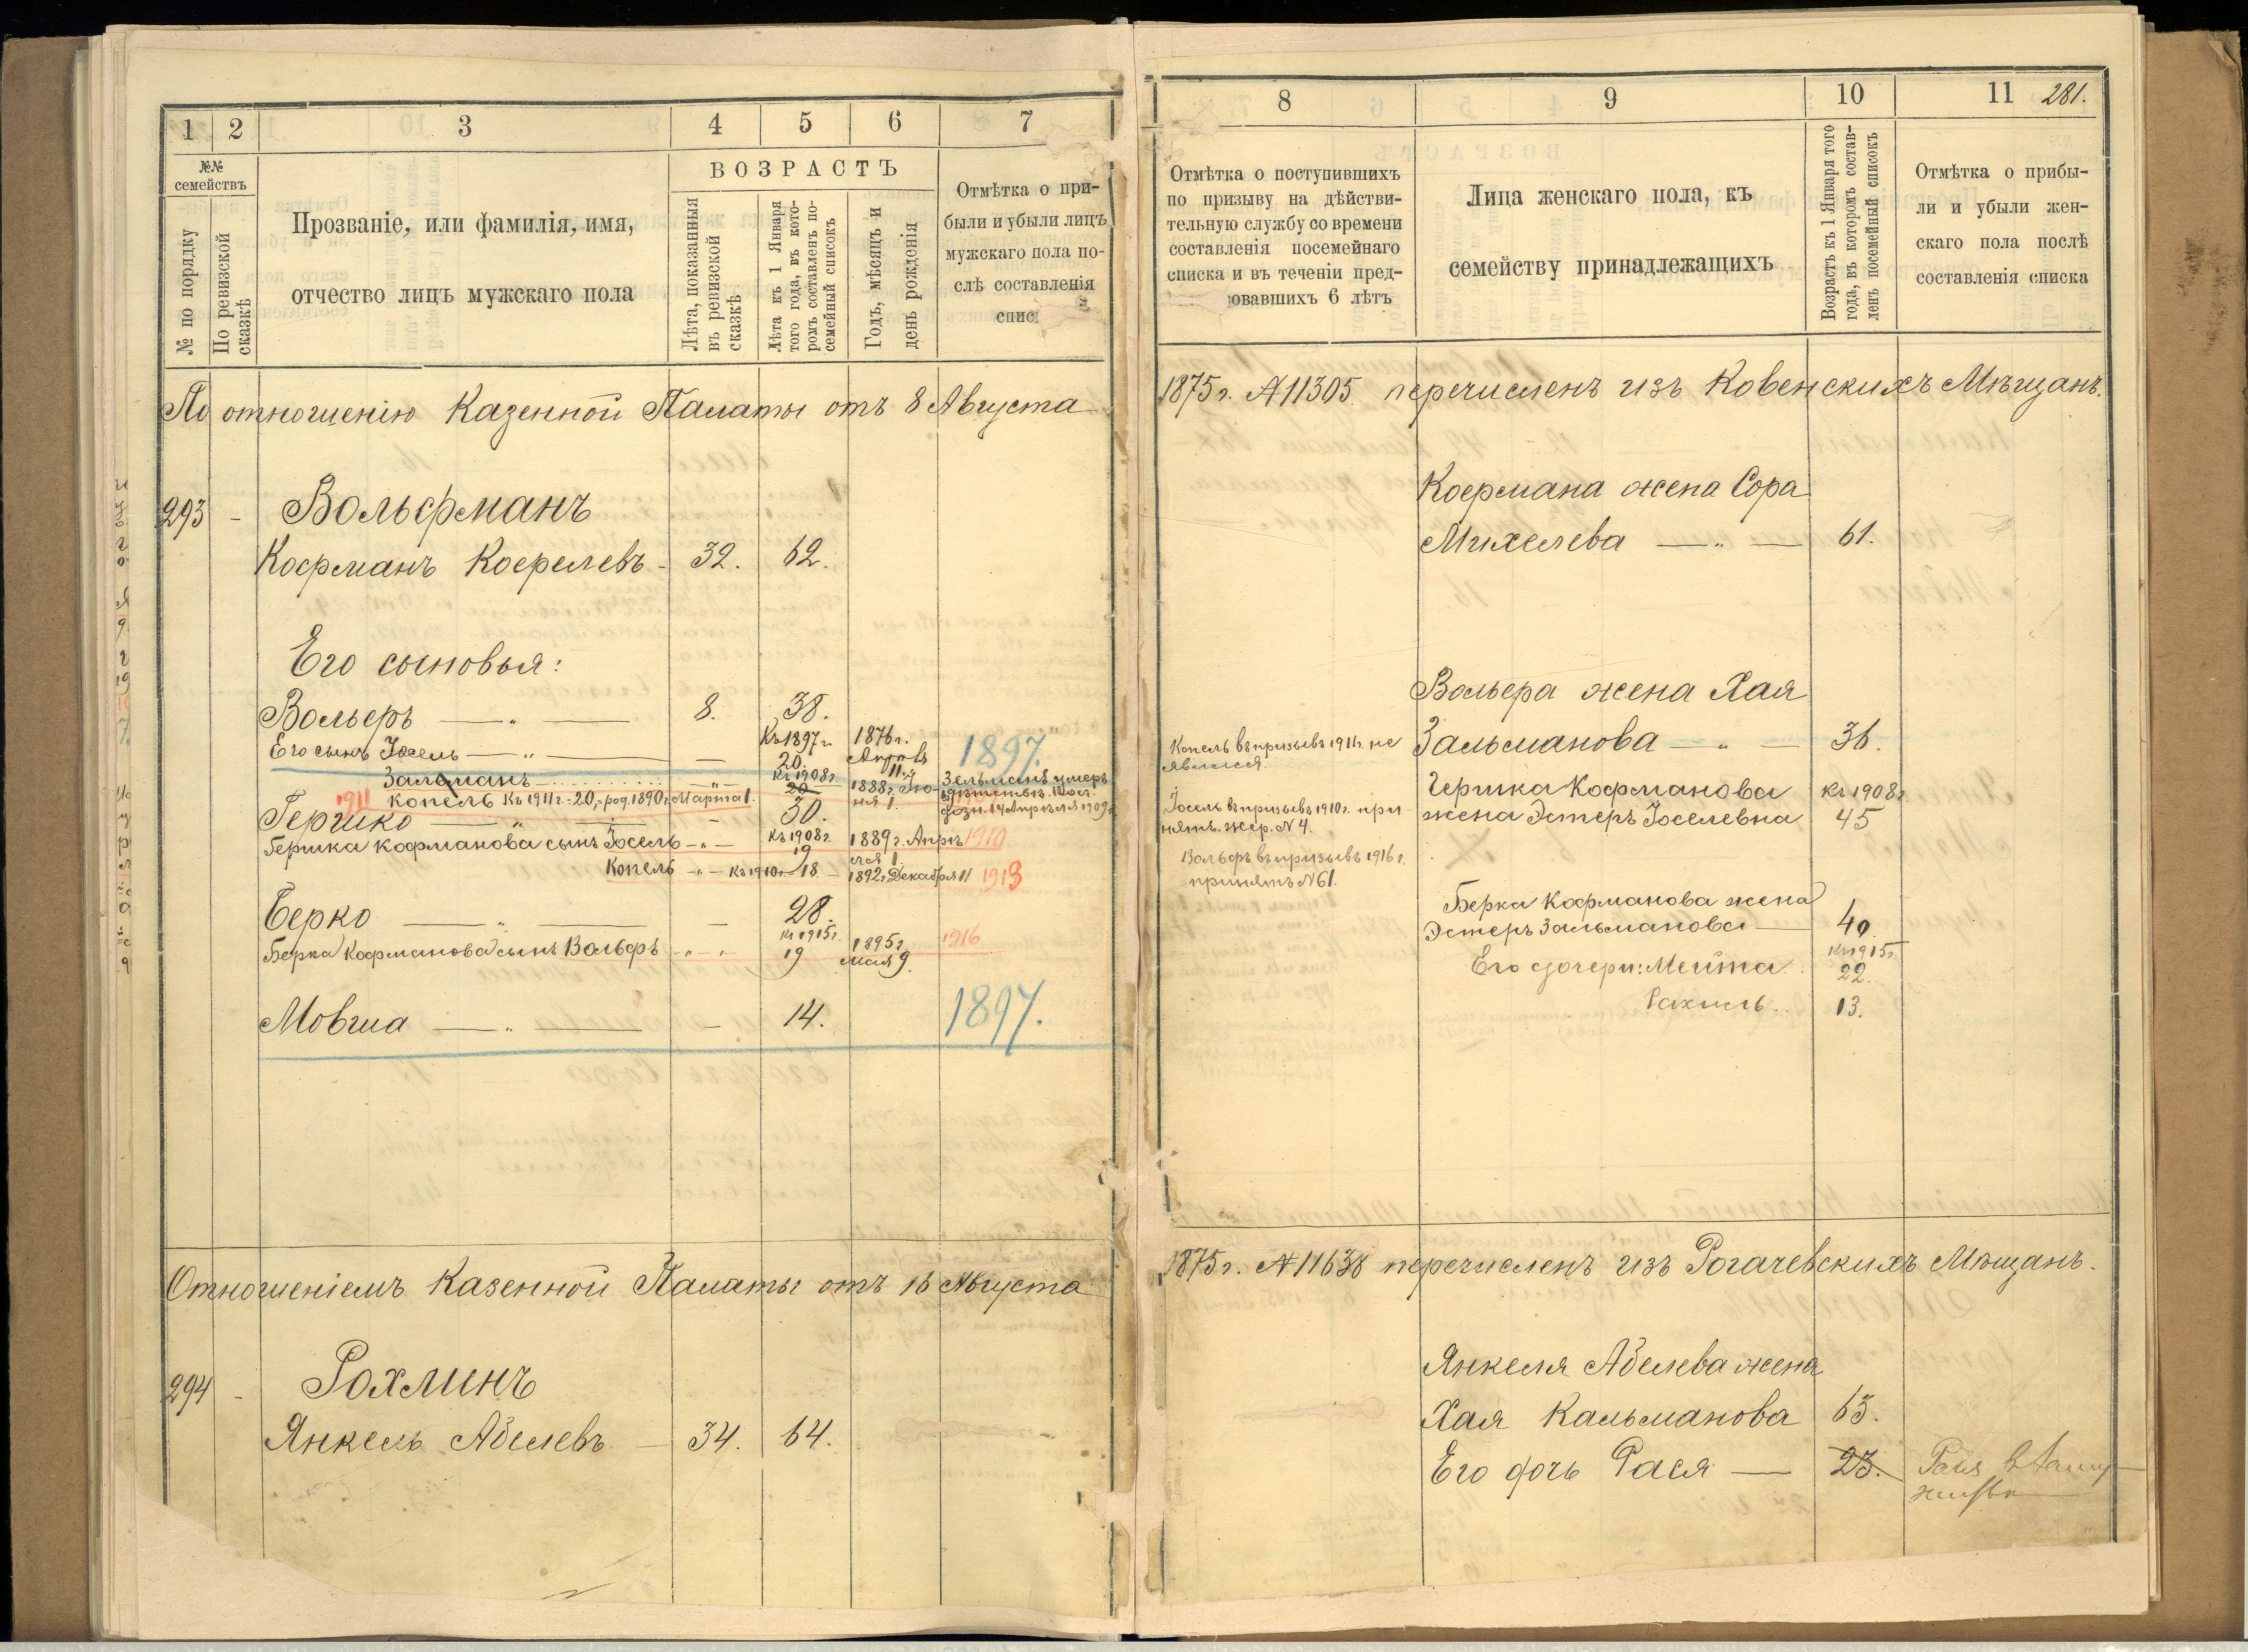 1
2
3
4
5
6
7
№№ семействъ
№ по порядку
По ревизской сказкѣ
Прозваніе, или фамилія, имя,
отчество лицъ мужскаго пола
ВОЗРАСТЪ
Лѣта, показанныя
въ ревизской
сказкѣ
Лѣта къ 1 Января
того года, въ кото-
ромъ составленъ по-
семейный списокъ
Годъ, мѣсяцъ и
день рожденія
Отмѣтка о при-
были и убыли лицъ
мужскаго пола по-
слѣ составленія
спис
По отношенію Казенной Палаты отъ 8 Августа
293 - Вольфманъ
Кофманъ Кофелевъ - 32. 62.
Его сыновья:
Вольфъ — " — 8. 38.
Его сынъ Іосель — " — — Къ 1897 г. 20. 1876 г. Апрѣля 11. 1897.
Залманъ — " — Къ 1908 г. 20 1888 г. Іюня 1. Зельманъ умеръ
14 Апрѣля 1909 г.
1911 Копель Къ 1911 г. - 20, - род. 1890 г. Марта 1.
Гершко — " — - 30.
Гершка Кофманова сынъ Іосель - " - Къ 1908 г. 19 1889 г. Апрѣля 1. 1910
Копель - " - Къ 1910 г. 18 - 1892 г. Декабря 11 1913
Берко — " — — 28.
Берка Кофманова сынъ Вольфъ - " - Къ 1915 г. 19 1895 г. мая 9. 1916
Мовша — " — - 14. 1897.
Отношеніемъ Казенной Палаты отъ 16 Августа
294 - Рохлинъ
Янкель Абелевъ — 34. 64.
8
9
10
11
281.
Отмѣтка о поступившихъ
по призыву на дѣйстви-
тельную службу со времени
составленія посемейнаго
списка и въ теченіи пред-
овавшихъ 6 лѣтъ
Лица женскаго пола, къ
семейству принадлежащихъ
Возрастъ къ 1 Января того
года, въ которомъ состав-
ленъ посемейный списокъ
Отмѣтка о прибы-
ли и убыли жен-
скаго пола послѣ
составленія списка
1875 г. № 11305 перечисленъ изъ Ковенскихъ Мѣщанъ.
Кофмана жена Сора
Михелева — " — 61.
Вольфа жена Хая
Зальманова — " — 36.
Копель въ призывъ 1911 г. не
явился.
Гершка Кофманова Къ 1908 г.
жена Эстеръ Іоселевна 45
Іосель въ призывъ 1910 г. при
нятъ. жер. № 4.
Вольфъ въ призывъ 1916 г.
принятъ № 61.
Берка Кофманова жена
Эстеръ Зальманова — 40
Къ 1915 г.
Его дочери: Мейта 22.
Рахиль 13.
1875 г. № 11638 перечисленъ изъ Рогачевскихъ Мѣщанъ.
Янкеля Абелева жена
Хая Кальманова 63.
Его дочь Рася — 23.